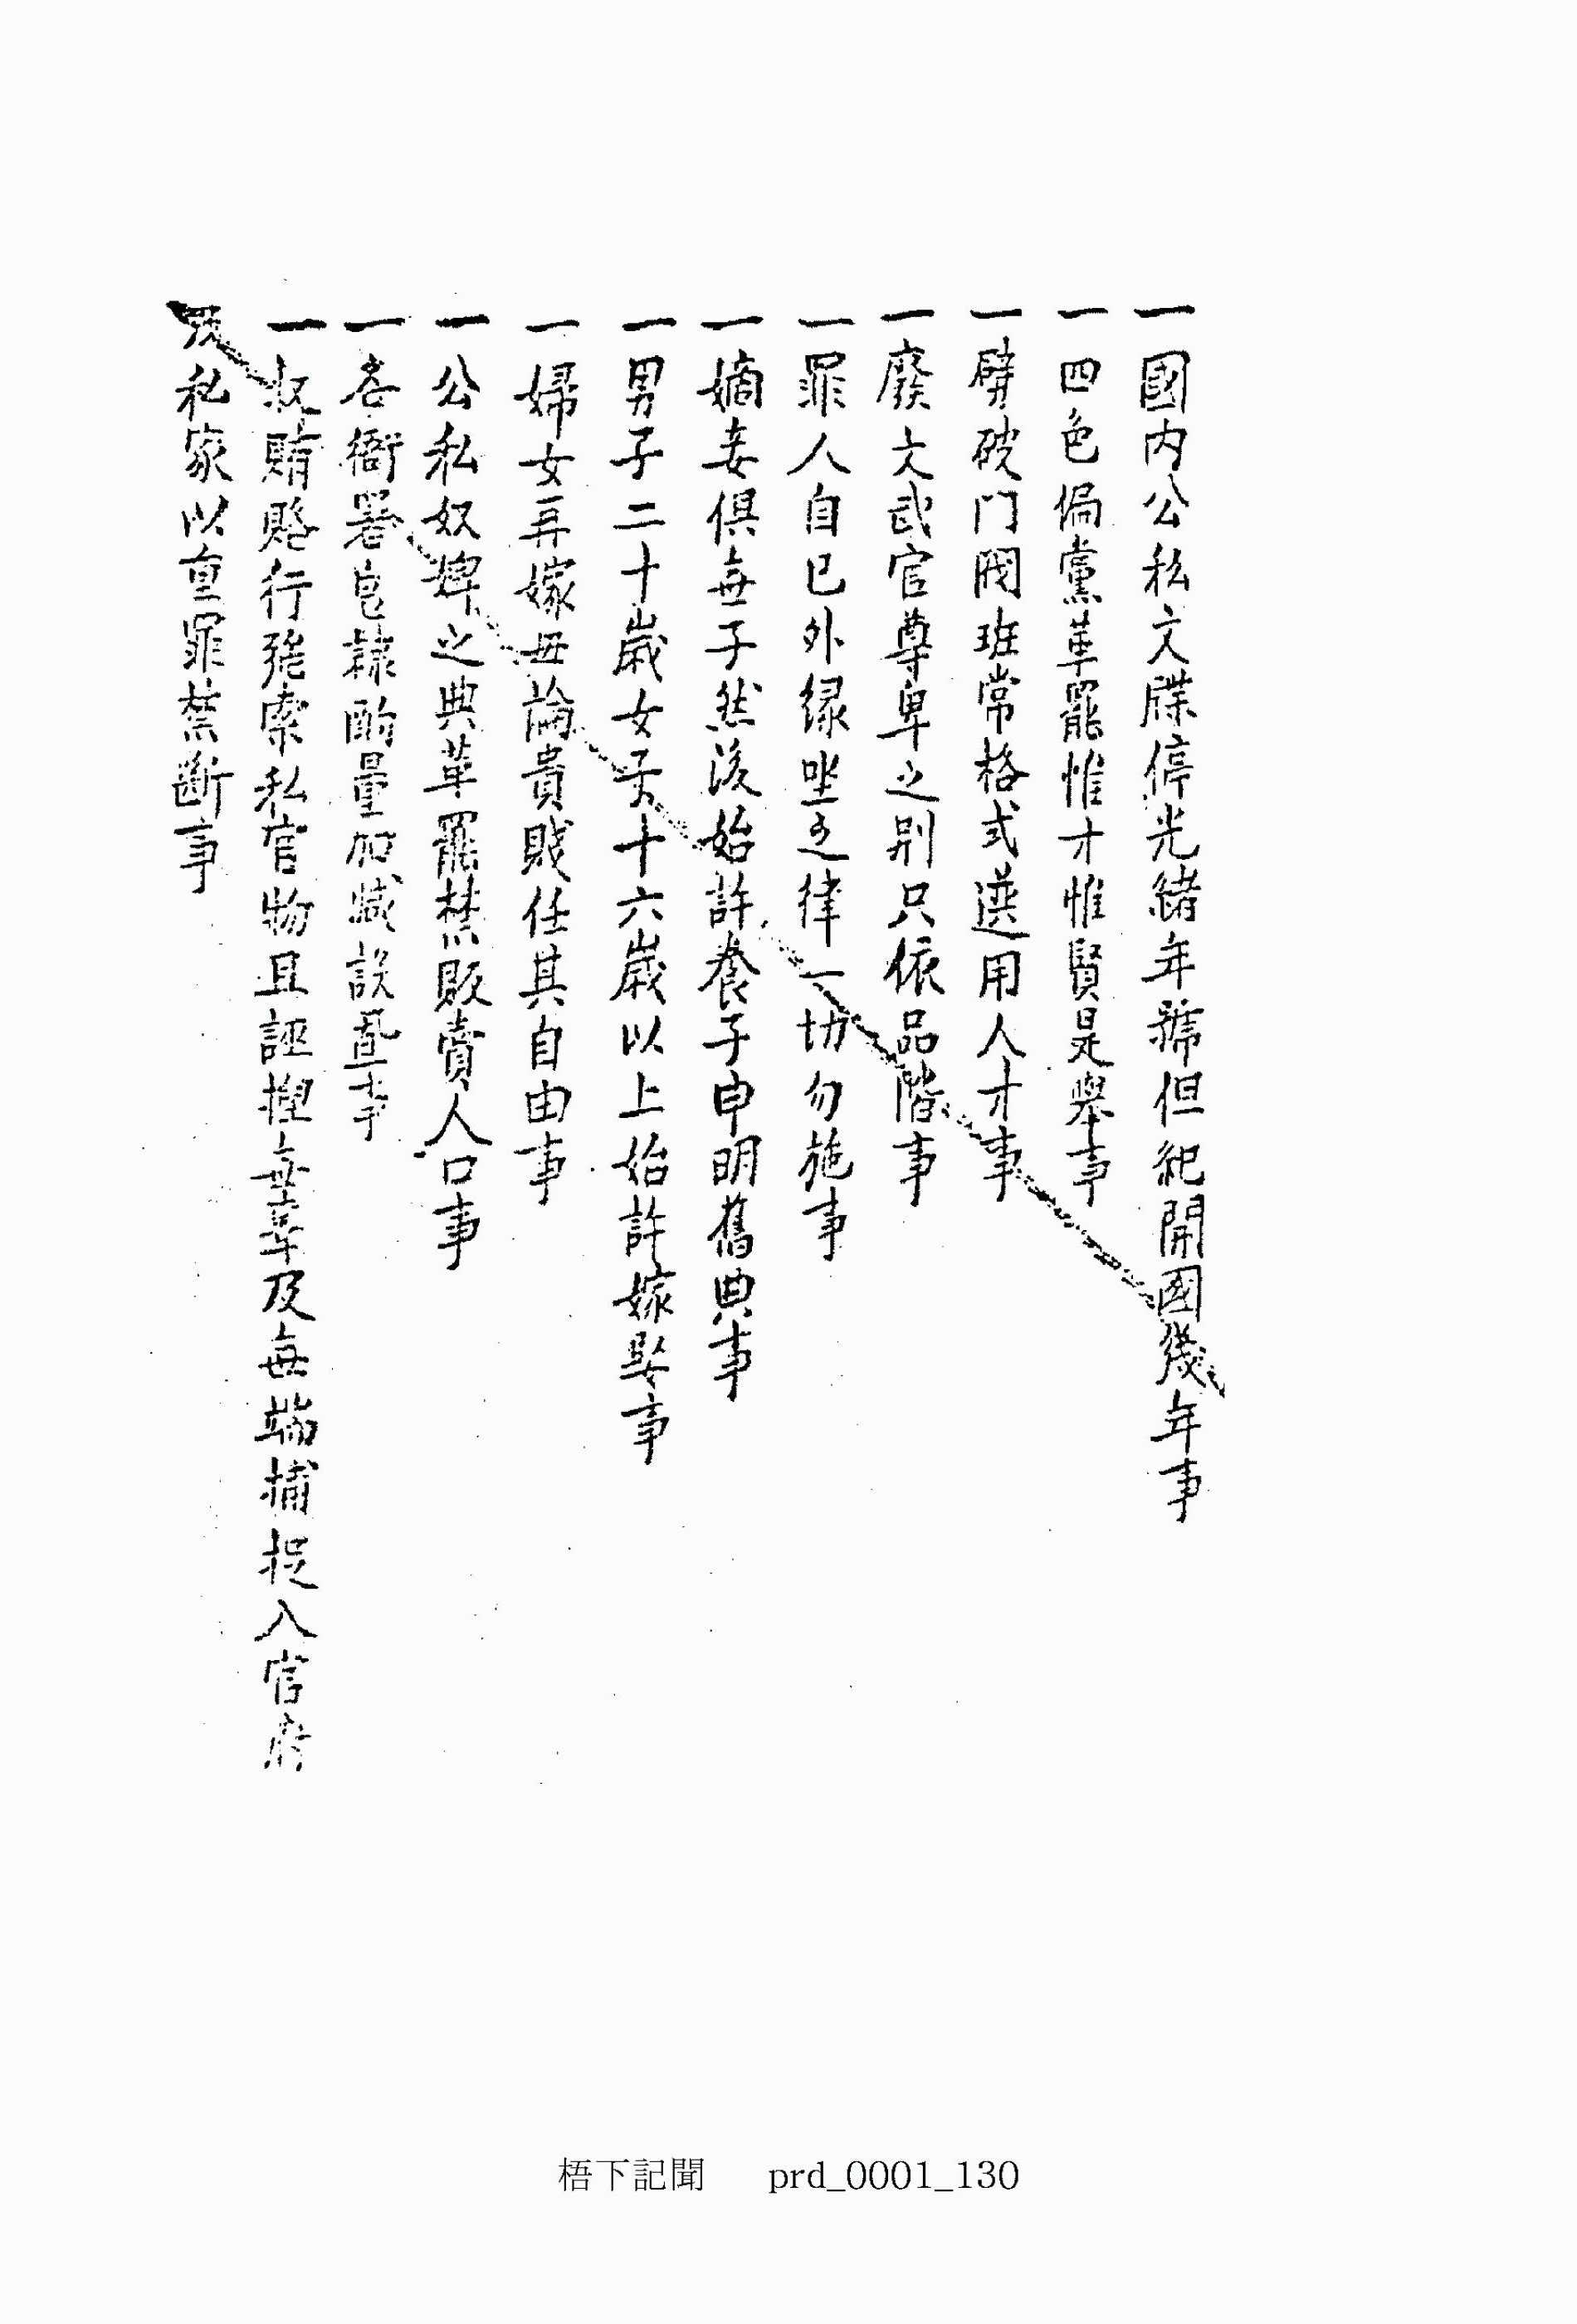 一國内公私文牒停光緖年號但紀開國幾年事
一四色偏黨革罷惟才惟賢是擧事
一劈破门閥班常格式選用人才事
一廢文武官尊卑之別只依品階事
一罪人自已外緣坐之律一切勿施事
一嫡妾俱無子然後始許養子申明舊典事
一男子二十歲女子十六歲以上始許嫁娶事
一婦女再嫁毋論貴賤任其自由事
一公私奴婢之典革罷禁販賣人口事
一各衙署皂隸酌量加減設置事
一收賄賂行 索私官物且誣捏無辜及無端捕捉入官府
及私家以重罪禁斷事
梧下記聞 prd_0001_130